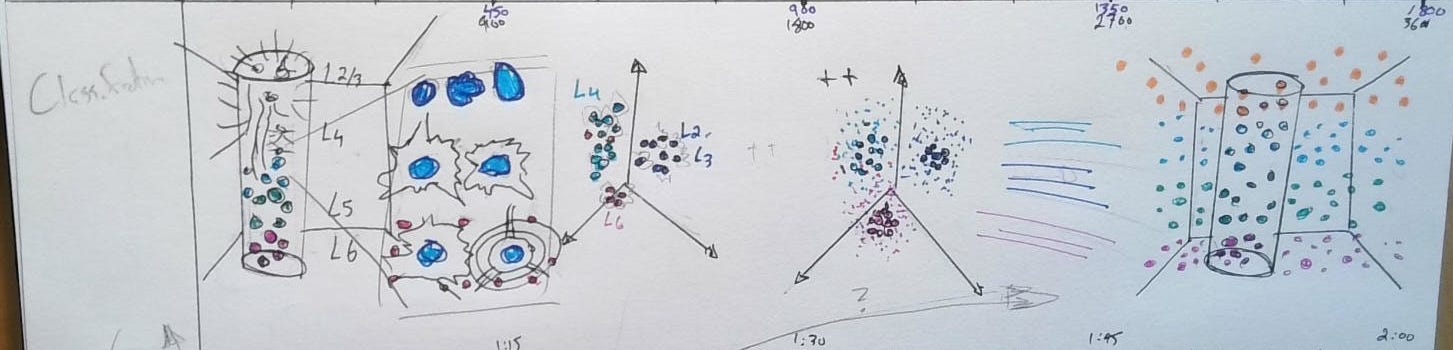 450
900
900
1800
1350
2700
1800
3600
Classification
L 2/3
L4
L5
L6
L4
L2.
L3
L6
++
++
?
1:15
1:30
1:45
2:00